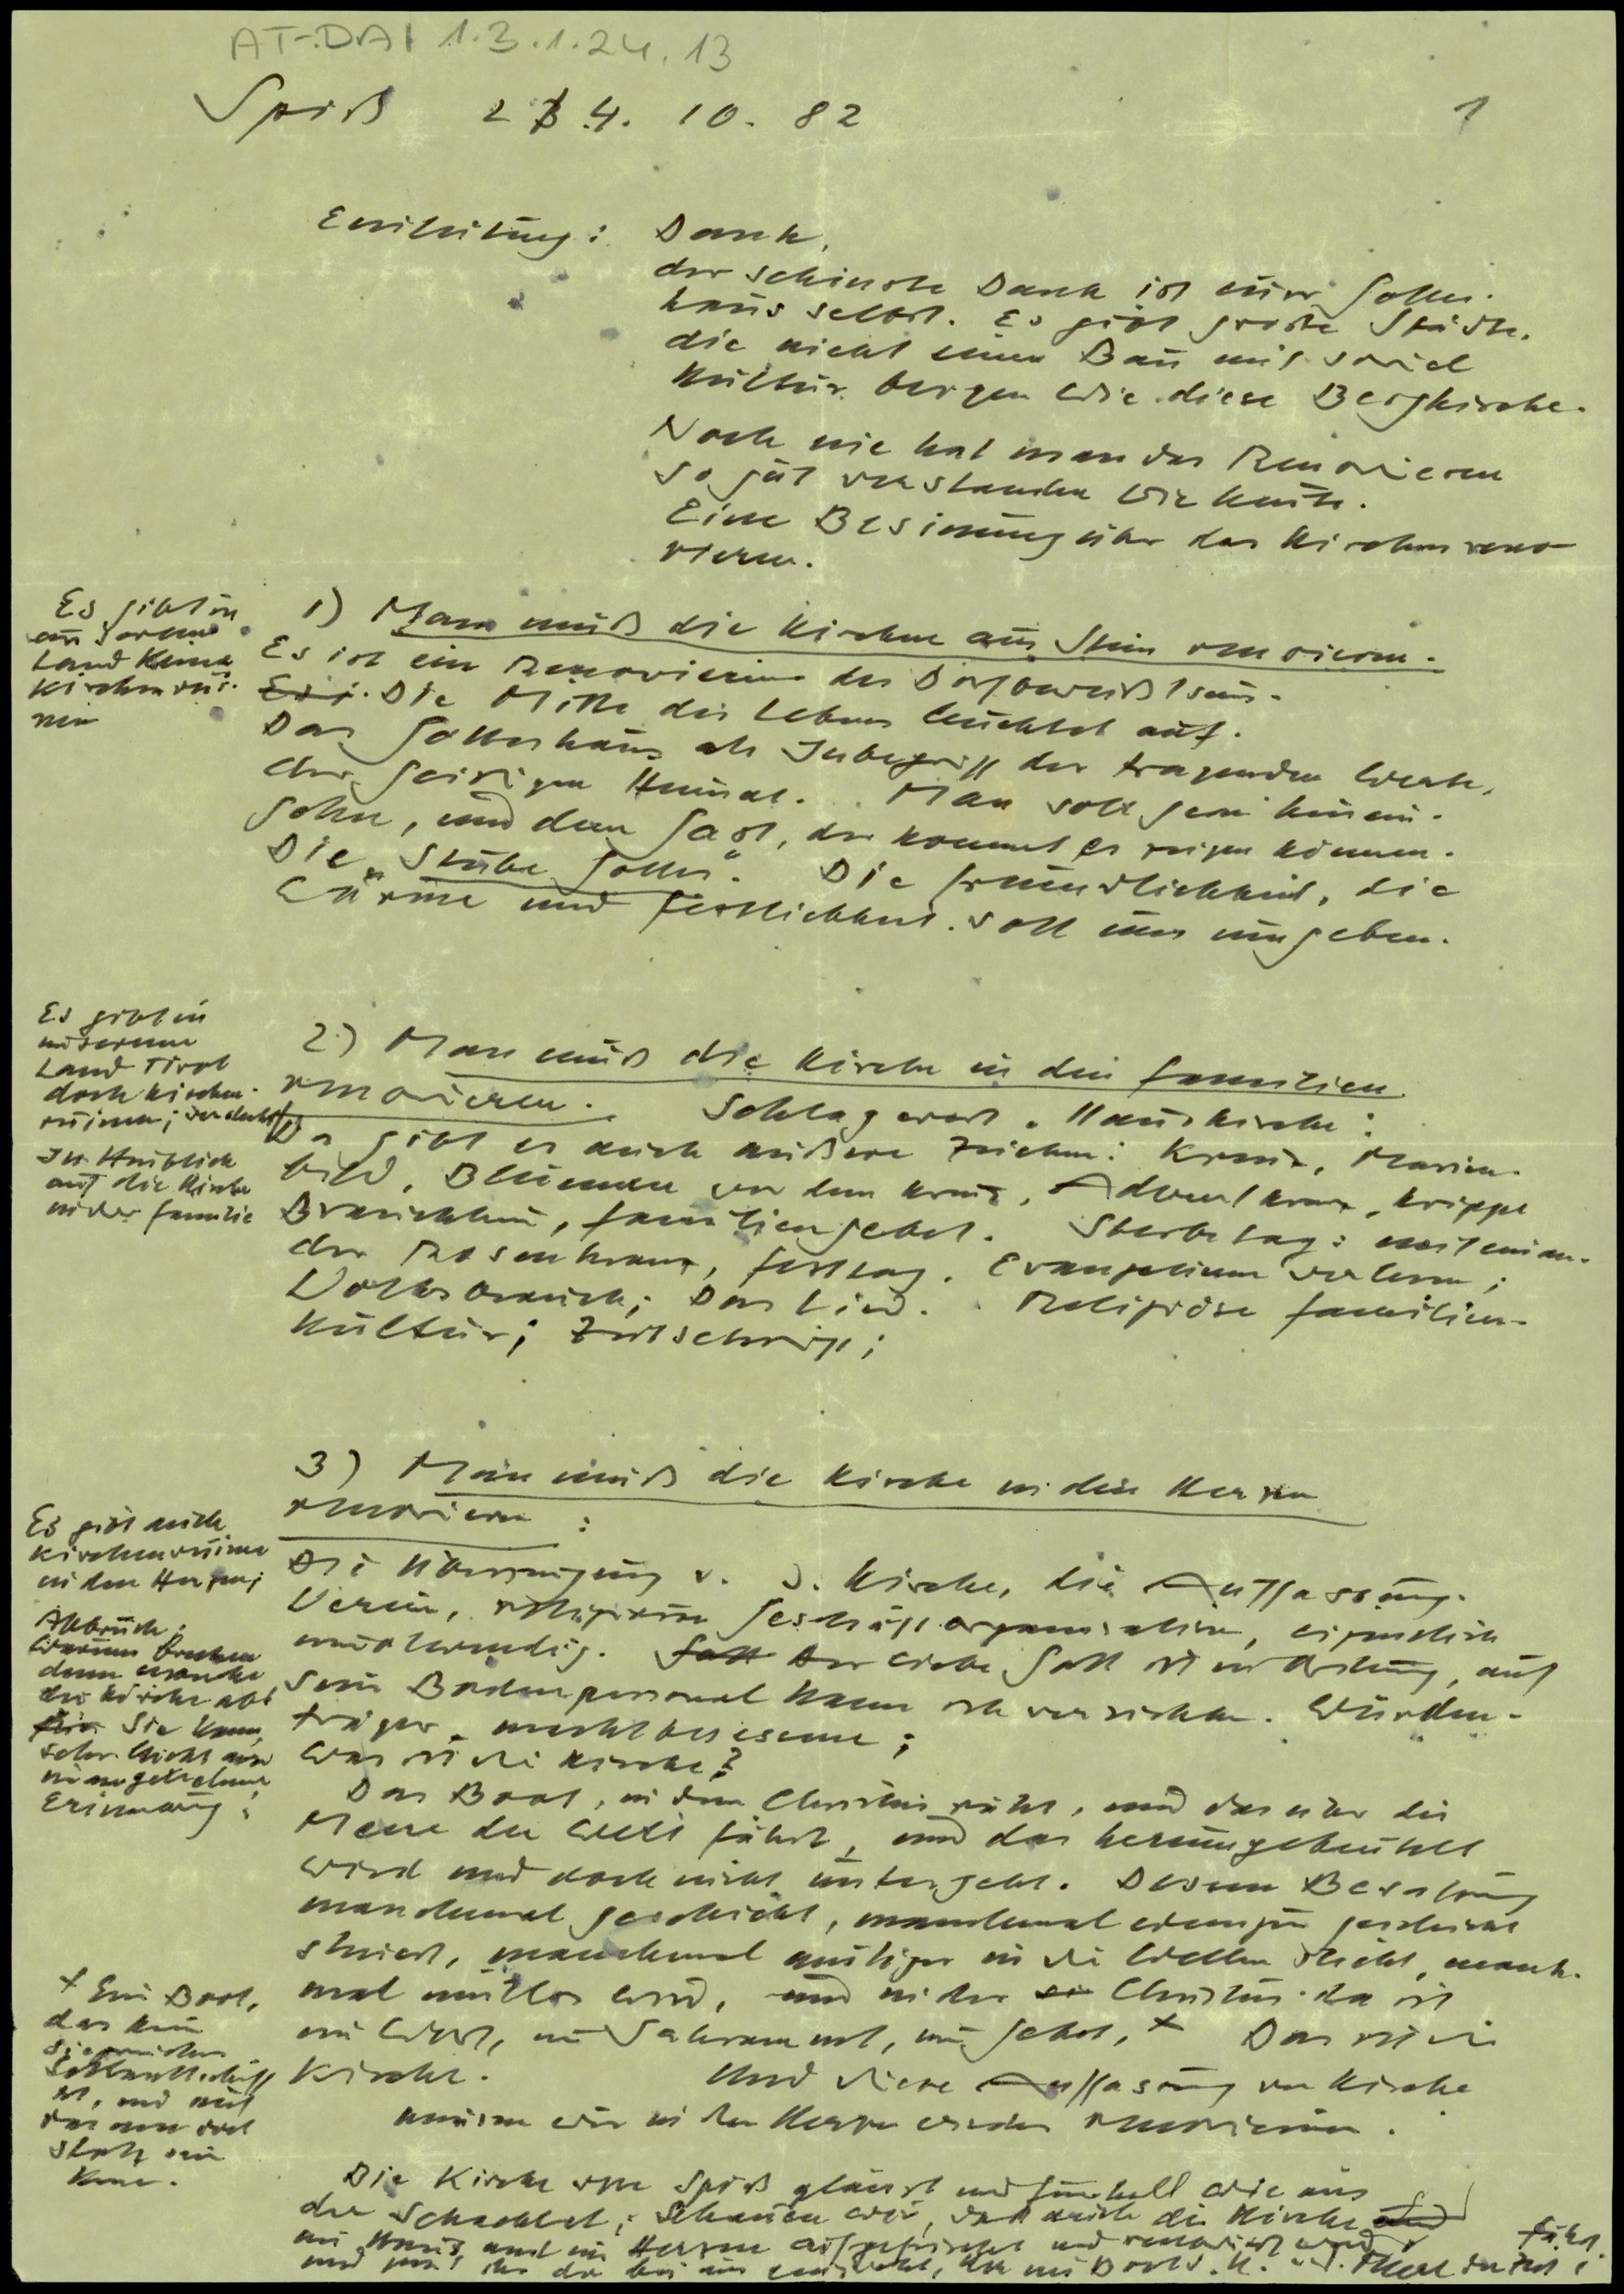 AT-DAI 1.3.1.24.13
Spiß 24. 10. 82 1
Einleitung: Dank,
der schönste Dank ist euer Gottes-
haus selbst. Es gibt große Städte,
die nicht einen Bau mit soviel
Kultur bergen wie diese Bergkirche.
Noch nie hat man das Renovieren
so gut verstanden wie heute.
Eine Besinnung über das Kirchenreno-
vieren.
Es gibt in
unserem
Land keine
Kirchenrui-
nen
1) Man muß die Kirche aus Stein renovieren.
Es ist ein Renovieren des Dorfbewußtseins.
Die Mitte des Lebens leuchtet auf.
Das Gotteshaus als Inbegriff der tragenden Werte,
der geistigen Heimat. Man soll gern hinein-
gehen, und dem Gast, der kommt es zeigen können.
Die "Stube Gottes". Die Freundlichkeit, die
Wärme und Festlichkeit soll uns umgeben.
Es gibt in
unserem
Land Tirol
doch Kirchen-
ruinen;
Im Hinblick
auf die Kirche
in der Familie
2) Man muß die Kirche in den Familien
renovieren. Schlagwort "Hauskirche":
Da gibt es auch äußere Zeichen: Kreuz, Marien-
bild, Blumen vor dem Kreuz, Adventkranz, Krippe
Brauchtum, Familiengebet. Sterbetag: miteinan-
der Rosenkranz, Festtag. Evangelium vorlesen;
Volksbrauch; Das Lied. Religiöse Familien-
kultur; Zeitschrift;
Es gibt auch
Kirchenruinen
in den Herzen;
Abbruch:
Warum brechen
denn manche
die Kirche ab?
Sie kam
Erinnerung;
3) Man muß die Kirche in den Herzen
renovieren:
Die Überzeugung v. d. Kirche, die Auffassung.
Verein, religiöse Geschäftsorganisation, eigentlich
unnotwendig. Der liebe Gott ist in Ordnung, auf
sein Bodenpersonal kann ich verzichten. Würden-
träger, machtbesessene;
Was ist die Kirche?
Das Boot, in dem Christus ruht, und das über die
Meere der Welt fährt, und das herumgebeutelt
wird und doch nicht untergeht. Dessen Besatzung
manchmal geschickt, manchmal weniger geschickt
steuert, manchmal mutiger in die Wellen sticht, manch-
mal mutlos wird, und in der Christus da ist
im Wort, im Sakrament, im Gebet, + Das ist die
Kirche. Und diese Auffassung von Kirche
müssen wir in den Herzen wieder renovieren.
+ Ein Boot,
das kein
Schlachtschiff
ist, und auf
das man
stolz sein
kann.
Die Kirche von Spiß glänzt und funkelt wie aus
der Schachtel; Schauen wir, daß auch die Kirche
im Haus und im Herzen aufgefrischt und renoviert wird